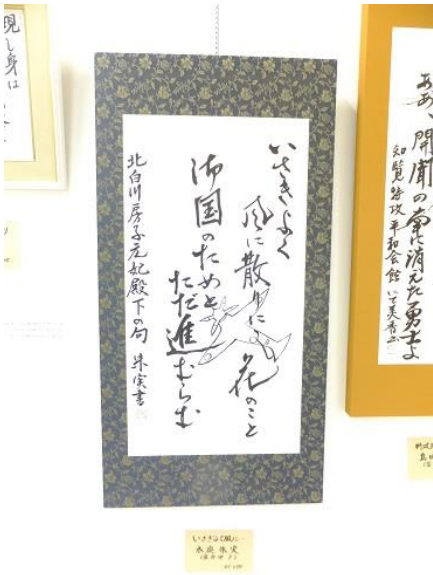 現し身は
いさぎよく
風に散りにし
花のこと
御国のためと
ただ進むらむ
北白川房子元妃殿下の句 朱実書
ああ、開聞の南に消えた勇士よ
知覧特攻平和会館にて
いさぎよく風に…
朱実